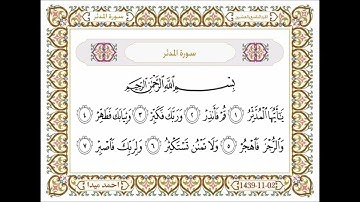 سورة المدثر
سورة المدثر
بِسْمِ اللَّهِ الرَّحْمَٰنِ الرَّحِيمِ
يَا أَيُّهَا الْمُدَّثِّرُ ١ قُمْ فَأَنذِرْ ٢ وَرَبَّكَ فَكَبِّرْ ٣ وَثِيَابَكَ فَطَهِّرْ ٤
وَالرُّجْزَ فَاهْجُرْ ٥ وَلَا تَمْنُن تَسْتَكْثِرُ ٦ وَلِرَبِّكَ فَاصْبِرْ ٧
احمد ميدا
1439-11-02